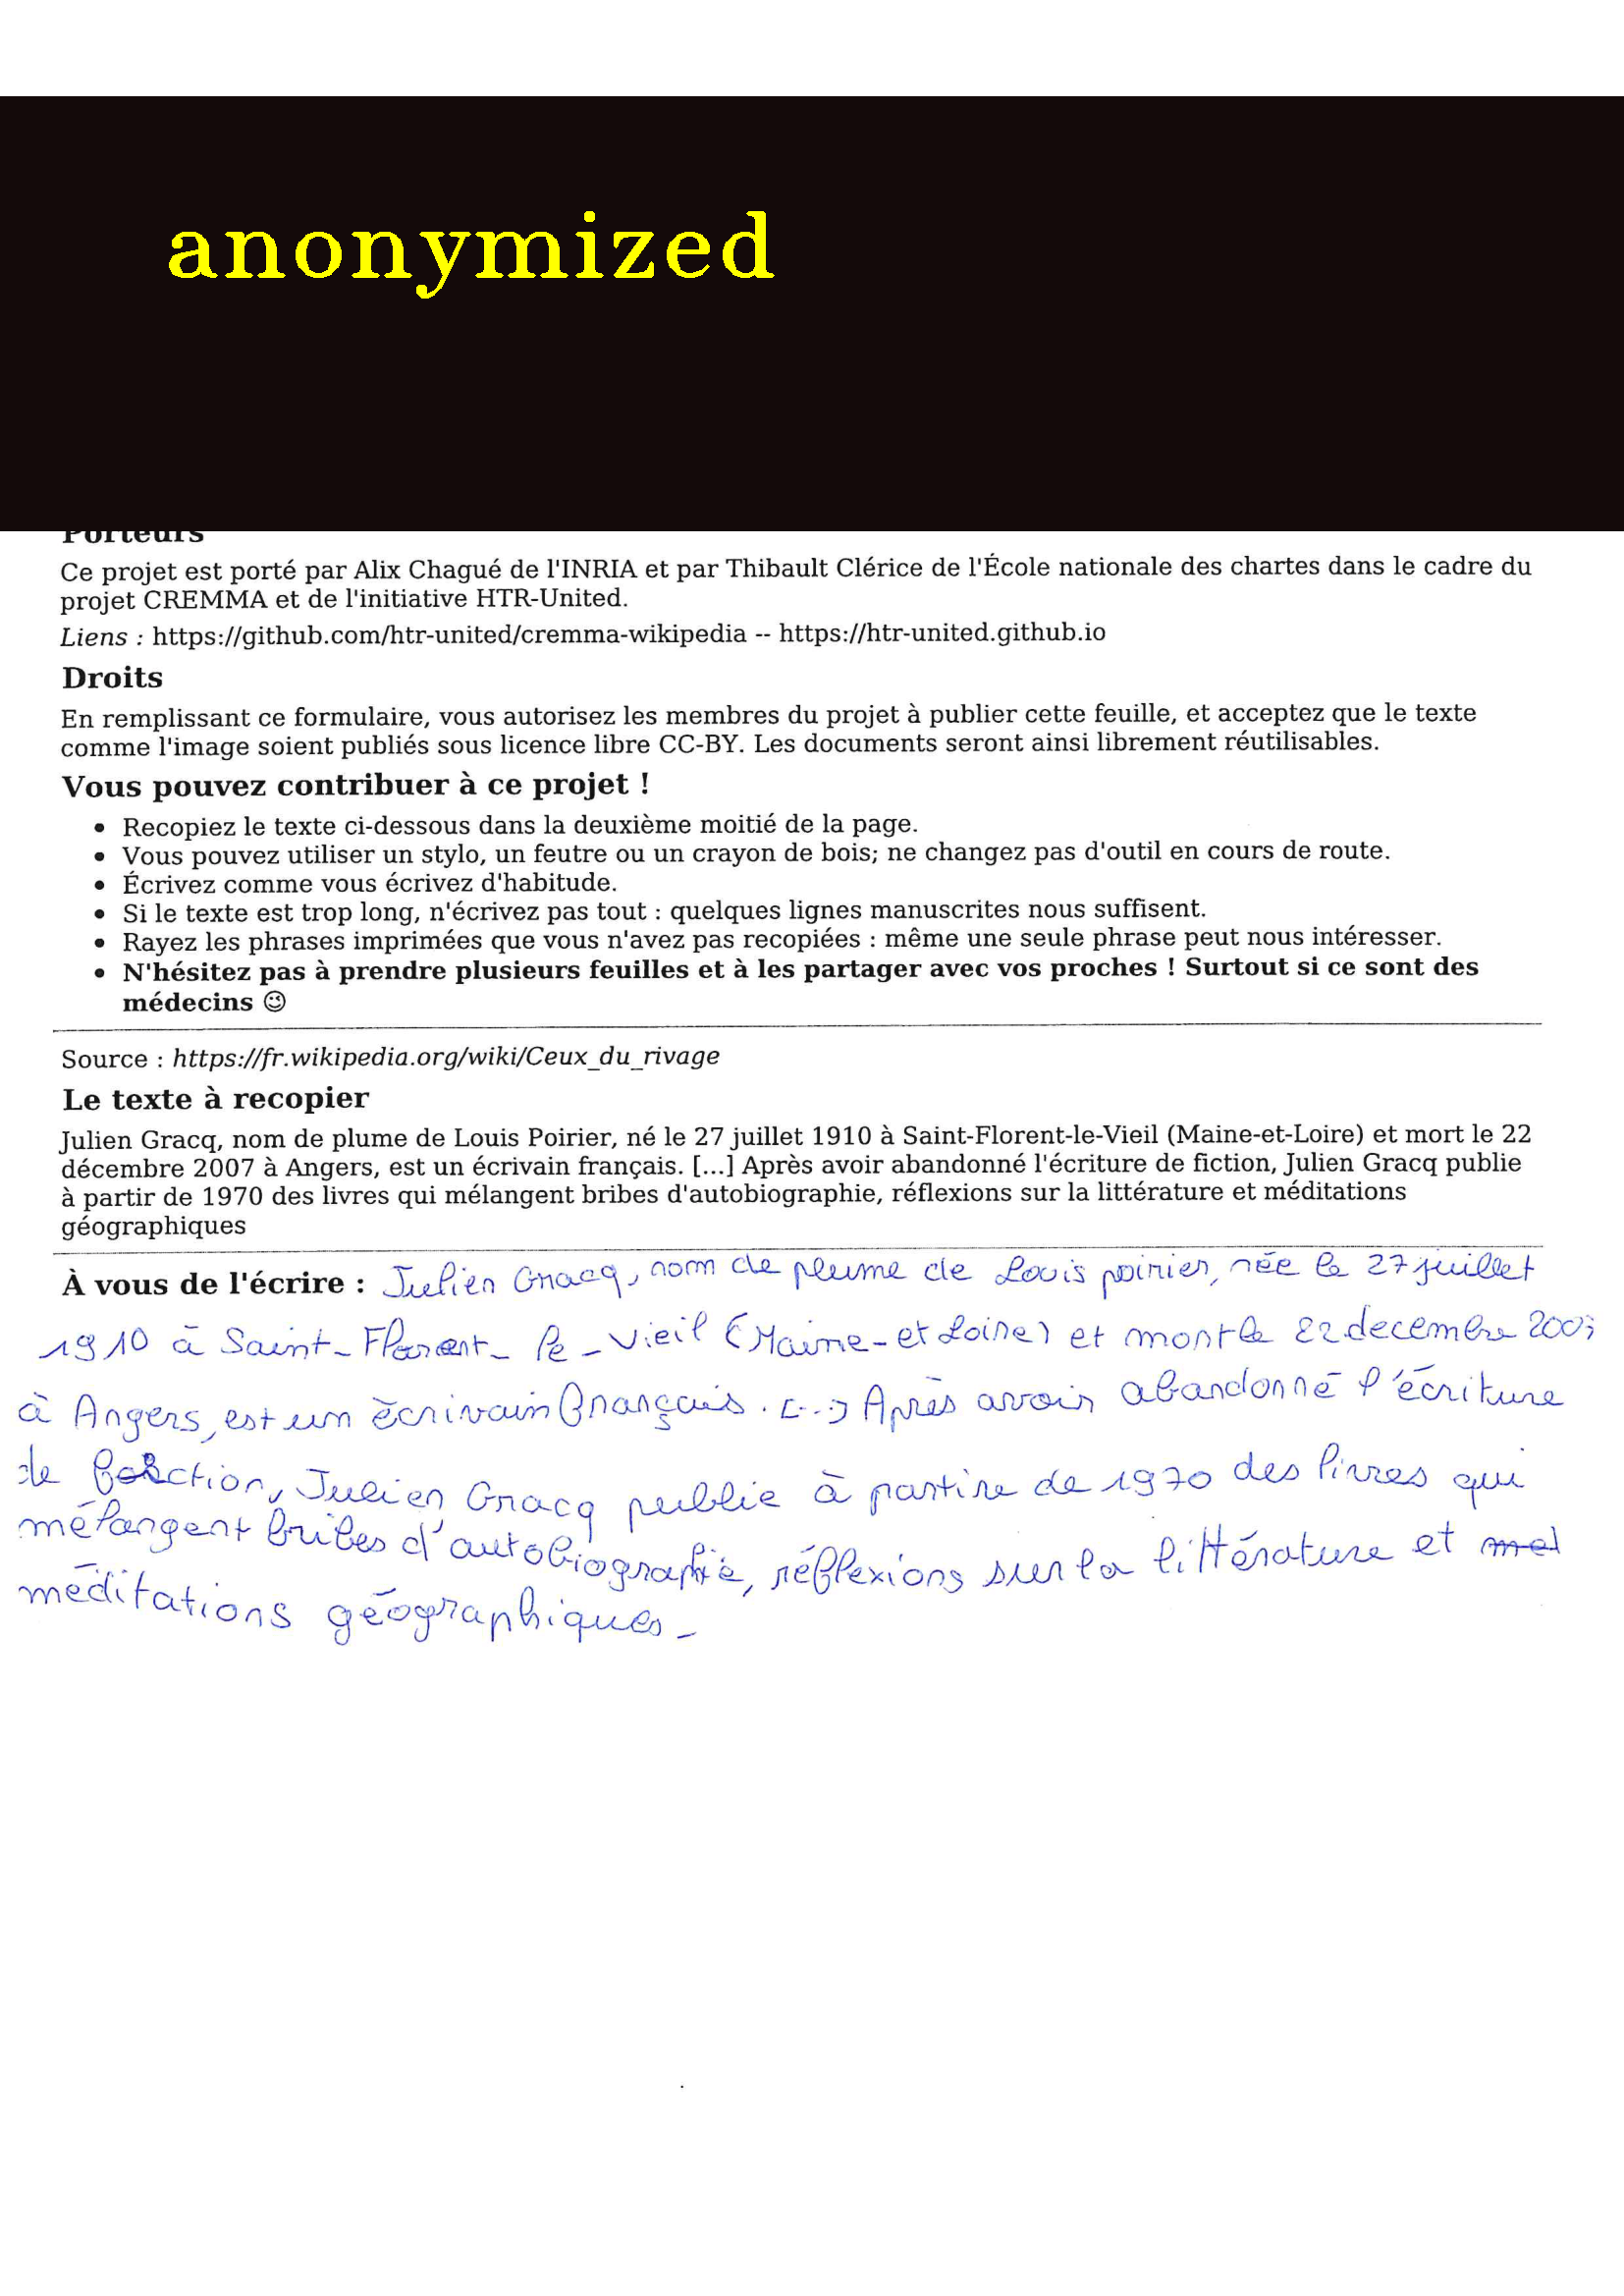 anonymized
Porteurs
Ce projet est porté par Alix Chagué de l'INRIA et par Thibault Clérice de l'École nationale des chartes dans le cadre du
projet CREMMA et de l'initiative HTR-United.
Liens : https://github.com/htr-united/cremma-wikipedia -- https://htr-united.github.io
Droits
En remplissant ce formulaire, vous autorisez les membres du projet à publier cette feuille, et acceptez que le texte
comme l'image soient publiés sous licence libre CC-BY. Les documents seront ainsi librement réutilisables.
Vous pouvez contribuer à ce projet !
• Recopiez le texte ci-dessous dans la deuxième moitié de la page.
• Vous pouvez utiliser un stylo, un feutre ou un crayon de bois; ne changez pas d'outil en cours de route.
• Écrivez comme vous écrivez d'habitude.
• Si le texte est trop long, n'écrivez pas tout : quelques lignes manuscrites nous suffisent.
• Rayez les phrases imprimées que vous n'avez pas recopiées : même une seule phrase peut nous intéresser.
• N'hésitez pas à prendre plusieurs feuilles et à les partager avec vos proches ! Surtout si ce sont des
médecins 😉
Source : https://fr.wikipedia.org/wiki/Ceux_du_rivage
Le texte à recopier
Julien Gracq, nom de plume de Louis Poirier, né le 27 juillet 1910 à Saint-Florent-le-Vieil (Maine-et-Loire) et mort le 22
décembre 2007 à Angers, est un écrivain français. [...] Après avoir abandonné l'écriture de fiction, Julien Gracq publie
à partir de 1970 des livres qui mélangent bribes d'autobiographie, réflexions sur la littérature et méditations
géographiques
À vous de l'écrire : Julien Gracq, nom de plume de Louis poirier, née le 27 juillet
1910 à Saint-Florent-le-Vieil (Maine-et Loire) et mort le 22 decembre 2007
à Angers, est un écrivain français. [...] Après avoir abandonné l'écriture
de fiction, Julien Gracq publie à partire de 1970 des livres qui
mélangent bribes d'autobiographie, réflexions sur la littérature et mel
méditations géographiques.